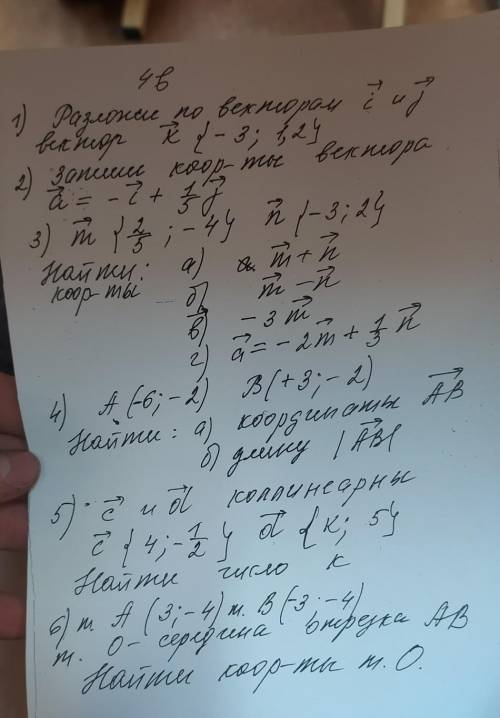 4в
1) Разложи по векторам i⃗ и j⃗
вектор x⃗ {-3; 1,2}
2) Запиши коор-ты вектора
a⃗ = -i⃗ + 1/5 j⃗
3) m⃗ {2/5; -4} n⃗ {-3; 2}
Найти: а) m⃗ + n⃗
коор-ты б) m⃗ - n⃗
в) -3 m⃗
г) a⃗ = -2m⃗ + 1/3 n⃗
4) A (-6; -2) B (+3; -2)
Найти: а) координаты AB⃗
б) длину |AB⃗|
5) c⃗ и d⃗ коллинеарны
c⃗ {4; -1/2} d⃗ {к; 5}
Найти число к
6) т. A (3; -4) т. B (-3; -4)
т. О - середина отрезка AB
Найти коор-ты т. О.